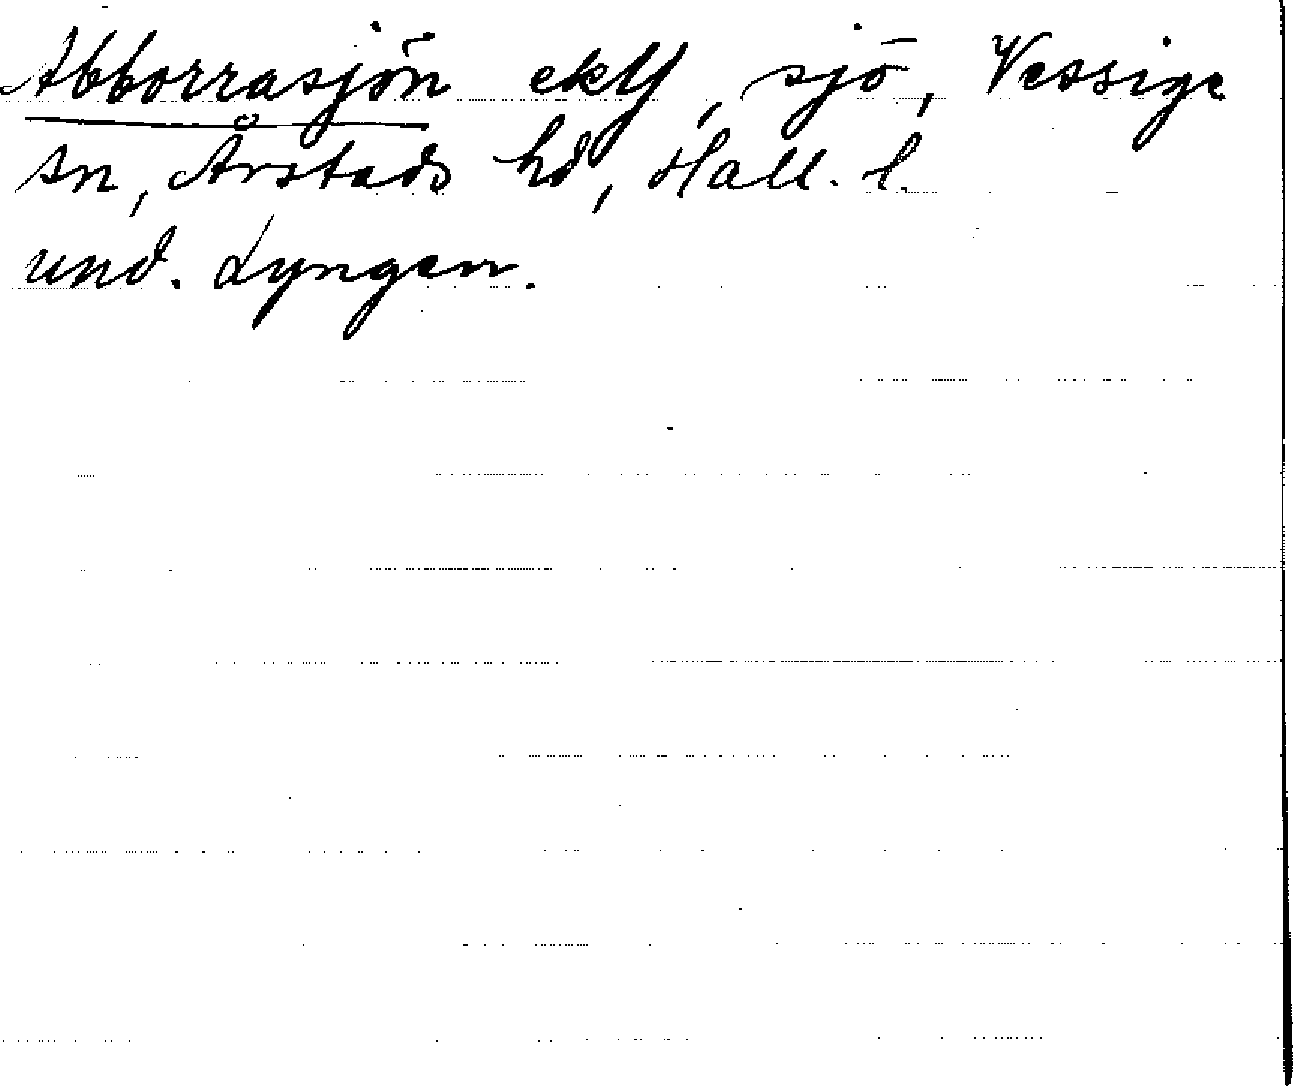 Abborrasjön ekbl, sjö, Vessige
sn, Årstads hd, Hall. l.
und. Lyngen.